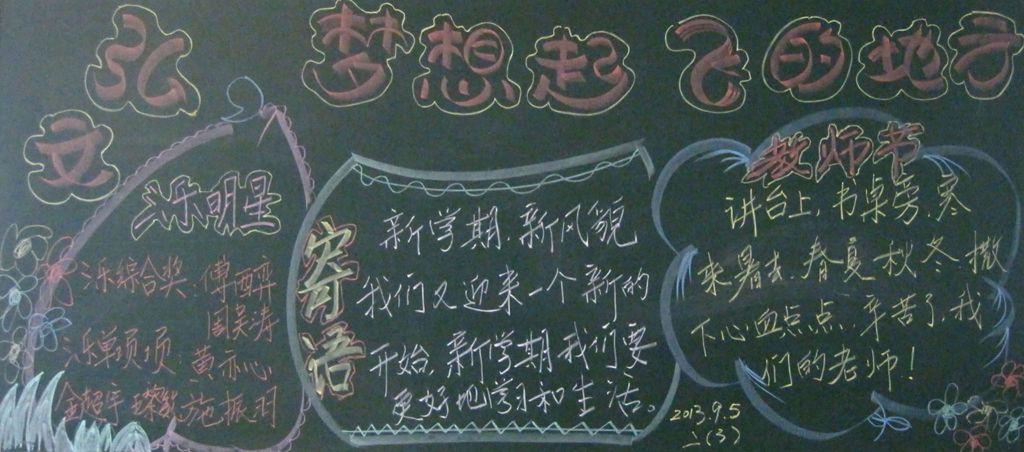 弘文
梦想起飞的地方
泺明星
泺综合奖:傅
周 涛
泺单项项:黄亦心
施振羽
寄语
新学期,新风貌
我们又迎来一个新的
开始,新学期我们要
更好地学习和生活。
教师节
讲台上,书桌旁,寒
来暑去,春夏秋冬,撒
下心血点点,辛苦了,我
们的老师!
2013.9.5
(3)